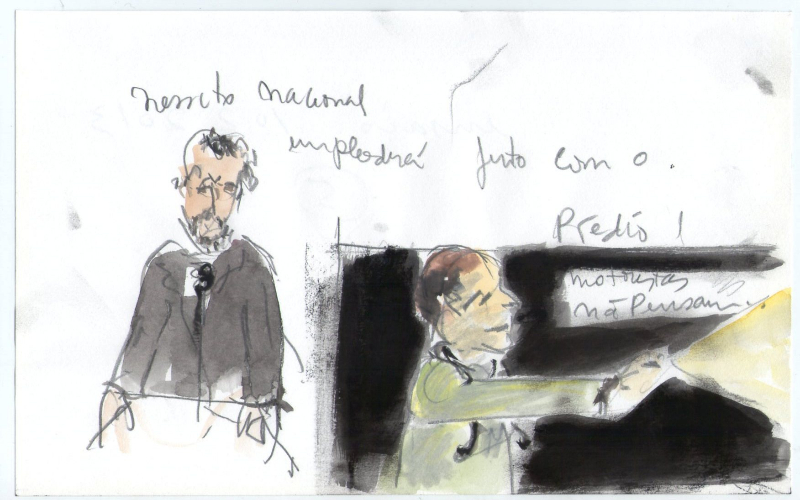 nacional
implodirá junto com o.
Predio!
motoristas
não Pensam...